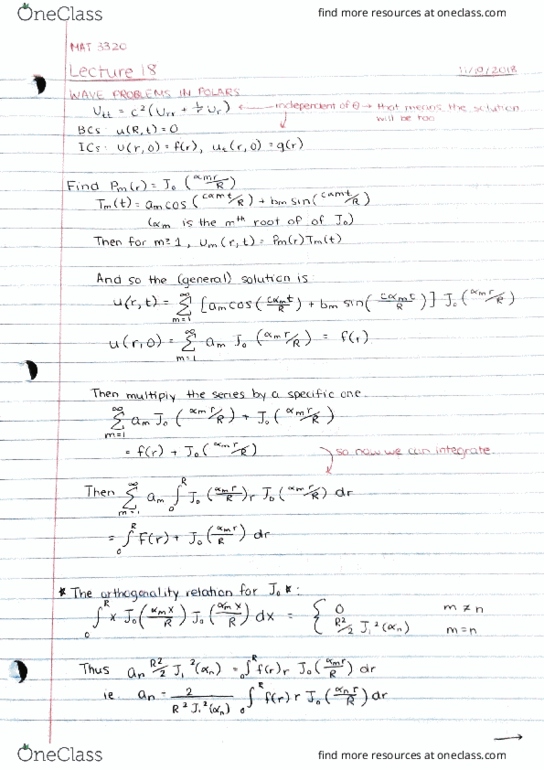 OneClass
find more resources at oneclass.com
MAT 3320
Lecture 18
11/19/2018
WAVE PROBLEMS IN POLARS
U_tt = c²(U_rr + 1/r U_r) ← independent of θ → that means, the solution will be too
BCs: u(R,t) = 0
ICs: U(r,0) = f(r), u_t(r,0) = g(r)
Find P_m(r) = J_0 (α_m r/R)
T_m(t) = a_m cos(cα_m t/R) + b_m sin(cα_m t/R)
(α_m is the m^th root of of J_0)
Then for m≥1, U_m(r,t) = P_m(r)T_m(t)
And so the (general) solution is:
u(r,t) = ∑_{m=1}^∞ [a_m cos(cα_m t/R) + b_m sin(cα_m t/R)] J_0(α_m r/R)
u(r,0) = ∑_{m=1}^∞ a_m J_0 (α_m r/R) = f(r)
Then multiply the series by a specific one.
∑_{m=1}^∞ a_m J_0 (α_m r/R) + J_0 (α_m r/R)
= f(r) + J_0 (α_m r/R)
so now we can integrate.
Then ∑_{m=1}^∞ a_m ∫_0^R J_0 (α_m r/R) r J_0 (α_m r/R) dr
= ∫_0^R f(r) + J_0 (α_m r/R) dr
* The orthogonality relation for J_0 *:
∫_0^R x J_0(α_m x/R) J_0(α_m x/R) dx = { 0 m ≠ n
R²/2 J_1²(α_n) m = n
Thus a_n R²/2 J_1²(α_n) = ∫_0^R f(r) r J_0 (α_m r/R) dr
ie. a_n = 2/(R² J_1²(α_n)) ∫_0^R f(r) r J_0 (α_n r/R) dr
→
OneClass
find more resources at oneclass.com